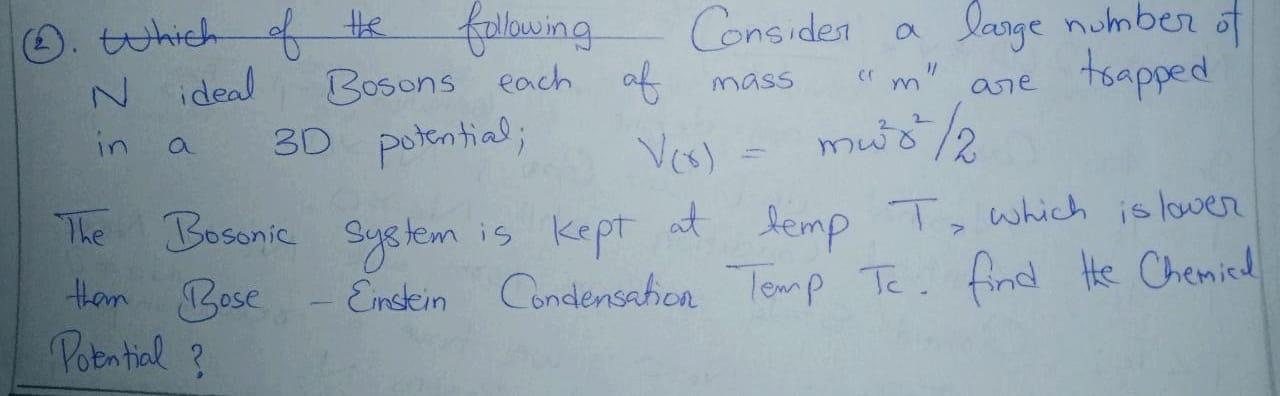 ②. Which of the following Consider a large number of
N ideal Bosons each of mass "m" are trapped
in a 3D potential; V(r) = mω²r²/2
The Bosonic System is kept at temp T, which is lower
than Bose - Einstein Condensation Temp Tc. find the Chemical
Potential ?